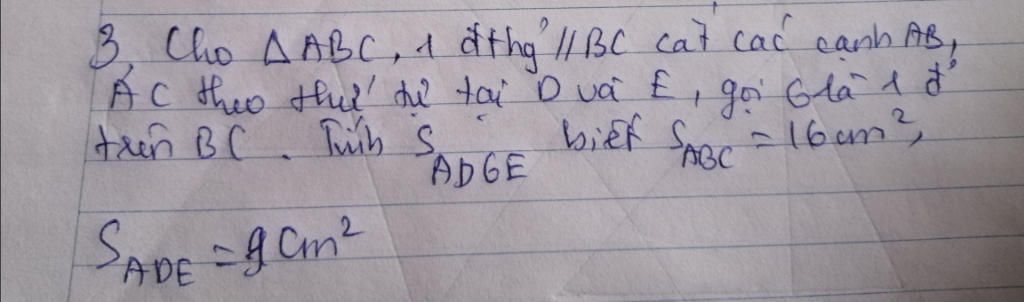 3, Cho ΔABC, 1 đthg̉ //BC cắt các cạnh AB,
AC theo thứ tự tại D và E, gọi G là 1 đ̉
trên BC. Tính S_ADGE biết S_ABC = 16cm²,
S_ADE = 9cm²